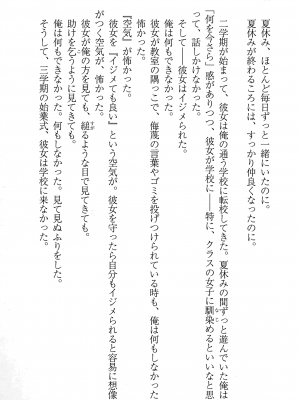 夏休み、ほとんど毎日ずっと一緒にいたのに。
夏休みが終わるころには、すっかり仲良くなったのに。
二学期が始まって、彼女は俺の通う学校に転校してきた。夏休みの間ずっと遊んでいた俺は
「何を今さら」感がありつつ、彼女が学校に――特に、クラスの女子に馴染めるといいなと思
って、話しかけなか
そして――彼女はイジメられた。
俺は何もできなかった。
彼女が教室の隅っこで、侮蔑の言葉やゴミを投げつけられている時も、俺は何もしなかった
怖かった。
『空気』が、怖かった。
彼女を『イジメても良い』という空気が。彼女を守ったら自分もイジメられると容易に想像
がつく空気が、怖かった。
彼女が俺の方を見ても、縋るような目で見てきても。
助けを乞うように見てきても。
俺は何もできなかった。何もしなかった。見て見ぬふりをした。
そうして、三学期の始業式、彼女は学校に来なかった。